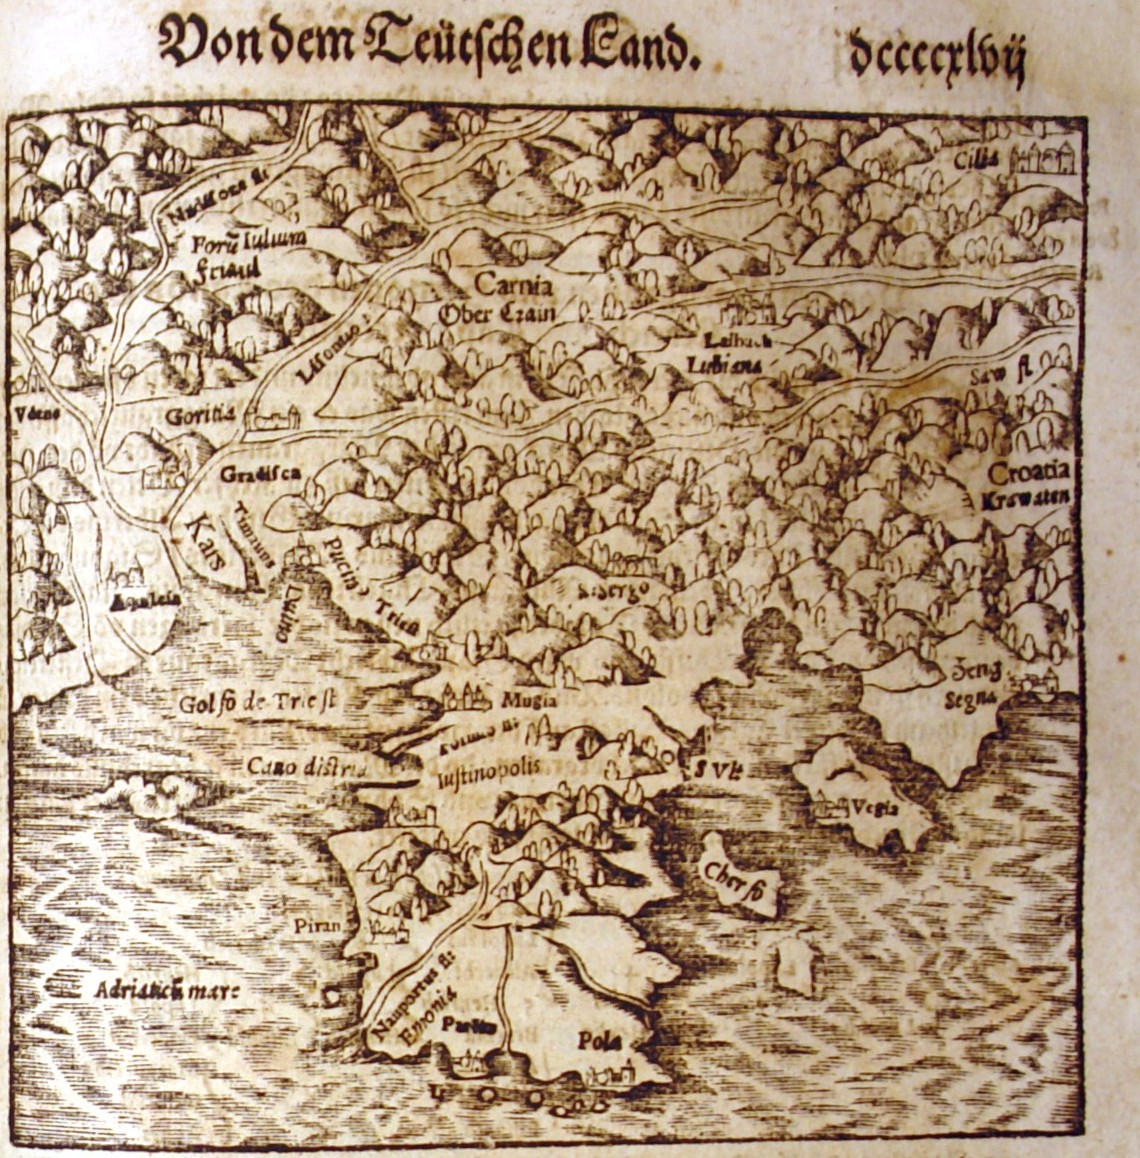 Von dem Teütschen Land. dccccxlvij
Cilia
Natisone fl:
Forũ Iulium
Friaul
Carnia
Ober Crain
Lisontio f:
Laibach
Lubiana
Saw fl
Goritia
Gradisca
Croatia
Krawaten
Kars
Timauus
Duino
Puciũ
Triest
Aquleia
Zeng
Segna
Golfo de Triest
Mugia
Formio fl:
Capo distria
Iustinopolis
S Vit
Vegia
Cherso
Piran
Adriaticũ mare
Nauportus fl:
Emonia
Pola